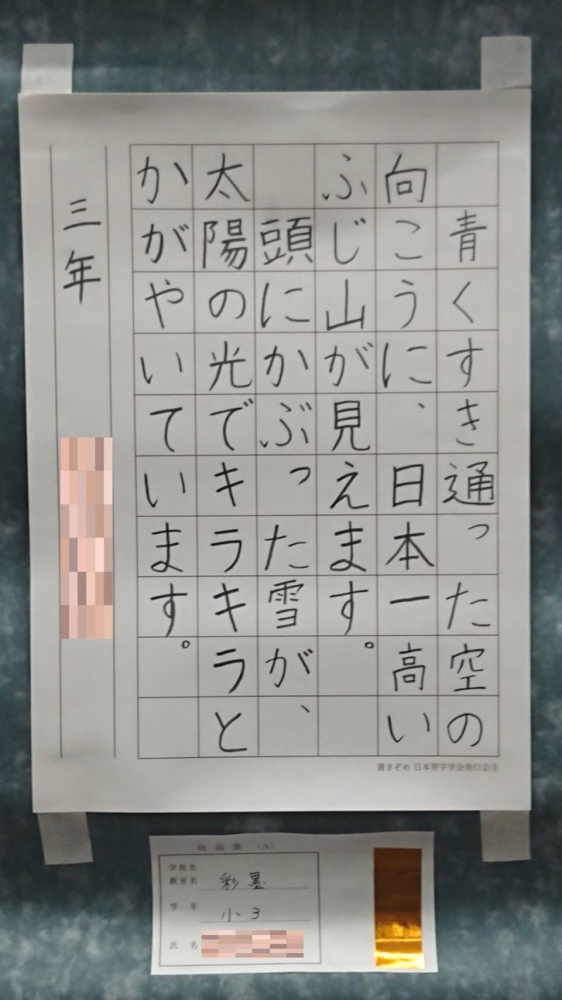 青くすき通った空の
向こうに、日本一高い
ふじ山が見えます。
頭にかぶった雪が、
太陽の光でキラキラと
かがやいています。
三年
書きぞめ 日本習字学会発行
出品票 (A)
学校名
教室名 彩墨
学年 小3
氏名